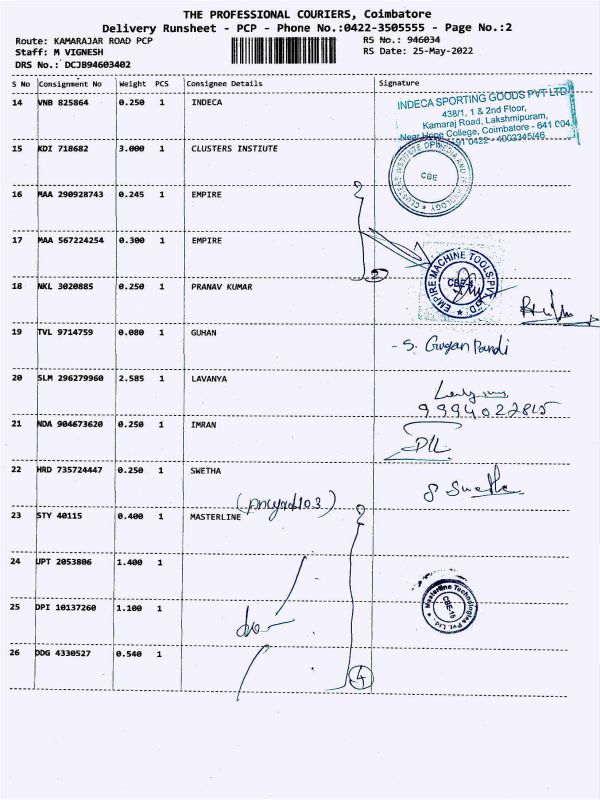 THE PROFESSIONAL COURIERS, Coimbatore
Delivery Runsheet - PCP - Phone No.:0422-3505555 - Page No.:2
Route: KAMARAJAR ROAD PCP
RS No.: 946034
Staff: M VIGNESH
RS Date: 25-May-2022
DRS No.: DCJB94603402
S No Consignment No Weight PCS Consignee Details Signature
14 VNB 825864 0.250 1 INDECA
INDECA SPORTING GOODS PVT LTD
438/1, 1 & 2nd Floor,
Kamaraj Road, Lakshmipuram,
Near Hope College, Coimbatore - 641 004.
0422 - 4002345/46
15 KDI 718682 3.000 1 CLUSTERS INSTIUTE
CLUSTERS INSTITUTE OF MEDIA AND TECHNOLOGY
CBE
16 MAA 290928743 0.245 1 EMPIRE
17 MAA 567224254 0.300 1 EMPIRE
2
EMPIRE MACHINE TOOLS PVT LTD
CBE-4
18 NKL 3020885 0.250 1 PRANAV KUMAR
19 TVL 9714759 0.080 1 GUHAN
- S. Gugan Pandi
20 SLM 296279960 2.585 1 LAVANYA
9994022815
21 NDA 904673620 0.250 1 IMRAN
22 HRD 735724447 0.250 1 SWETHA
S Swetha
23 STY 40115 0.400 1 MASTERLINE
24 JPT 2053806 1.400 1
25 DPI 10137260 1.100 1
Masterline Technologies Pvt. Ltd.
CBE-15
26 DDG 4330527 0.540 1
4